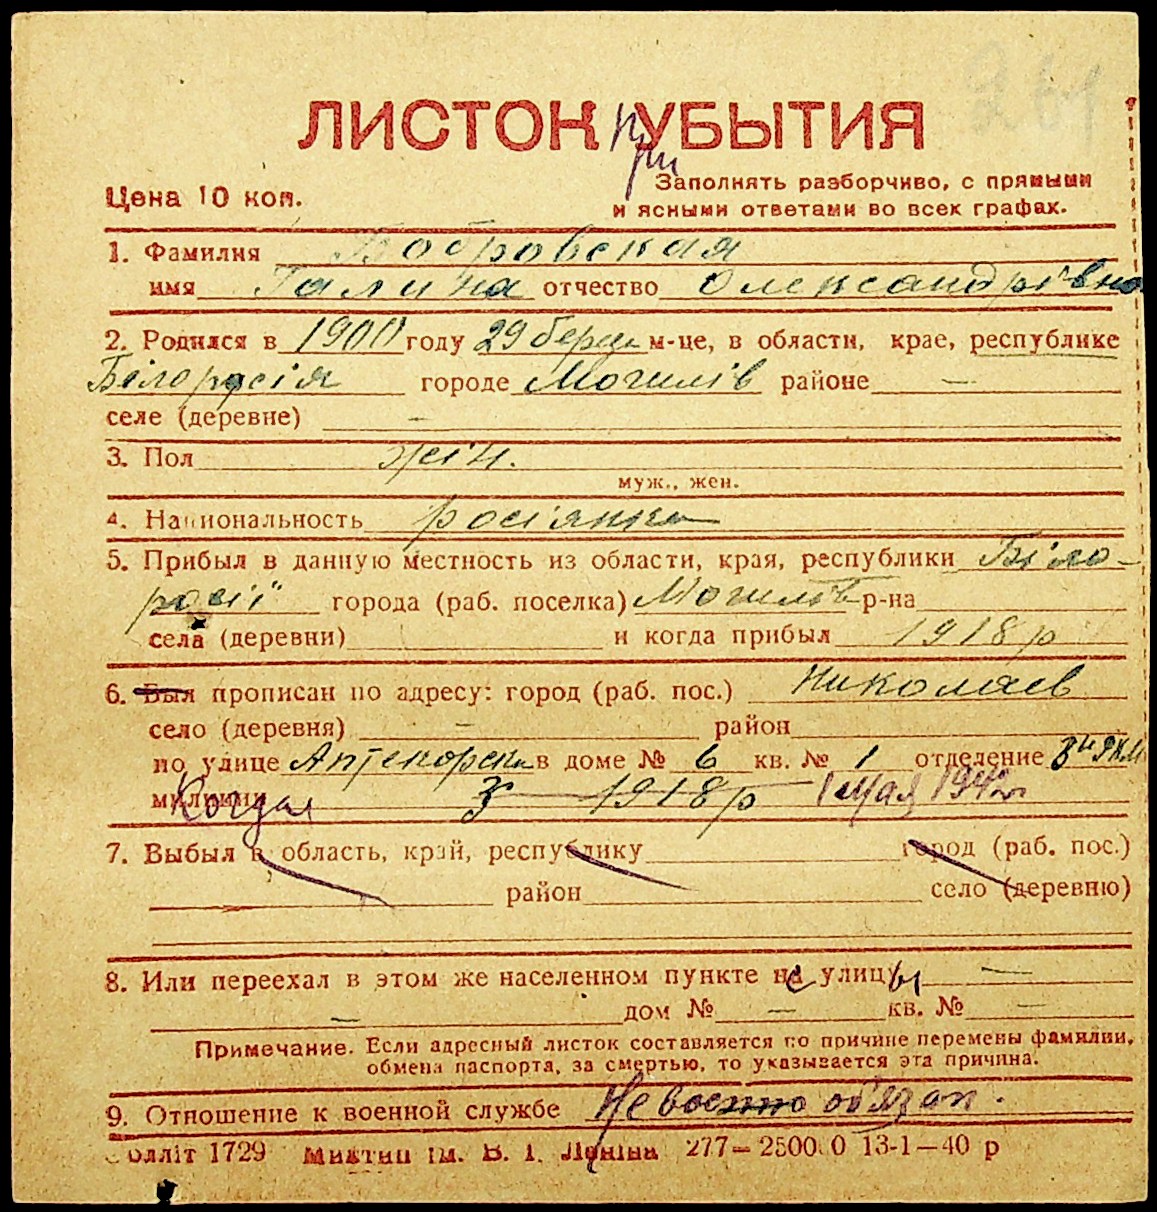 261
ЛИСТОК УБЫТИЯ
при
Цена 10 коп.
Заполнять разборчиво, с прямыми
и ясными ответами во всех графах.
1. Фамилия Бобровская
имя Галина отчество Олександрівна
2. Родился в 1900 году 29 берез м-це, в области, крае, республике
Білоросія городе Могилів районе —
селе (деревне) —
3. Пол жін.
муж., жен.
4. Национальность росіянка
5. Прибыл в данную местность из области, края, республики Біло-
росії города (раб. поселка) Могилів р-на
села (деревни) и когда прибыл 1918 р
6. Был прописан по адресу: город (раб. пос.) Николаев
село (деревня) — район
по улице Аптекорская в доме № 6 кв. № 1 отделение 3
милиции Когда З 1918 р 1 мая 1942
7. Выбыл в область, край, республику город (раб. пос.)
район село (деревню)
8. Или переехал в этом же населенном пункте с улицы —
— дом № — кв. № —
Примечание. Если адресный листок составляется по причине перемены фамилии,
обмена паспорта, за смертью, то указывается эта причина.
9. Отношение к военной службе Не военно обязан.
Облліт 1729 ім. В. І. Леніна 277—25000 13-1—40 р